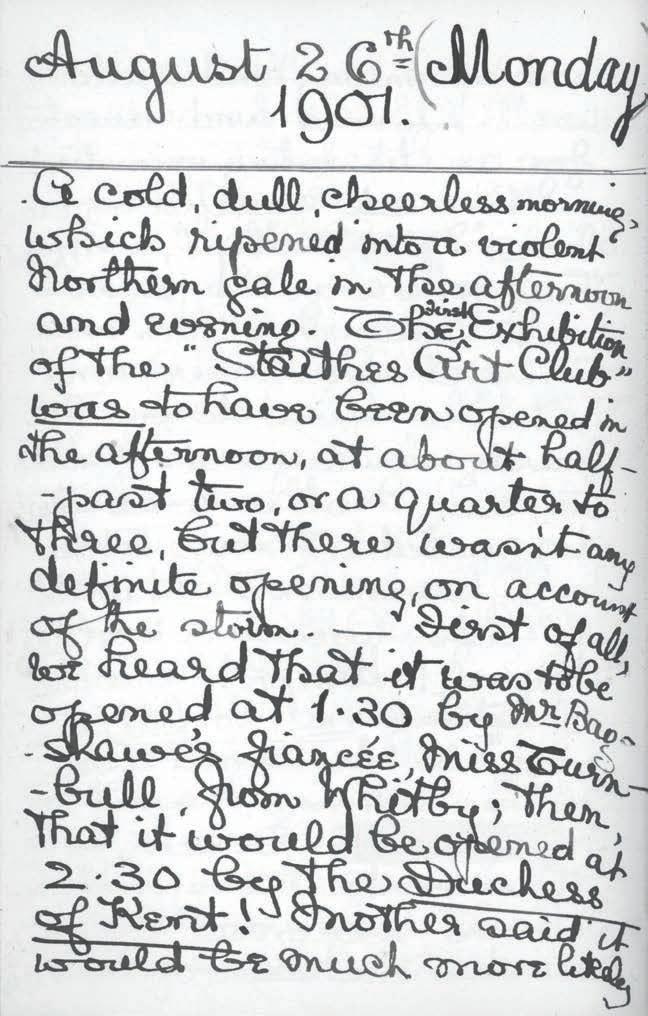 August 26th (Monday
1901.
A cold, dull, cheerless morning,
which ripened into a violent
Northern gale in the afternoon
and evening. The first Exhibition
of the "Staithes Art Club"
was to have been opened in
the afternoon, at about half-
-past two, or a quarter to
three, but there wasn't any
definite opening, on account
of the storm. First of all,
we heard that it was to be
opened at 1.30 by Mr Bag-
-shawe's fiancée, Miss Turn-
-bull from Whitby; then,
that it would be opened at
2.30 by the Duchess
of Kent! Mother said it
would be much more likely